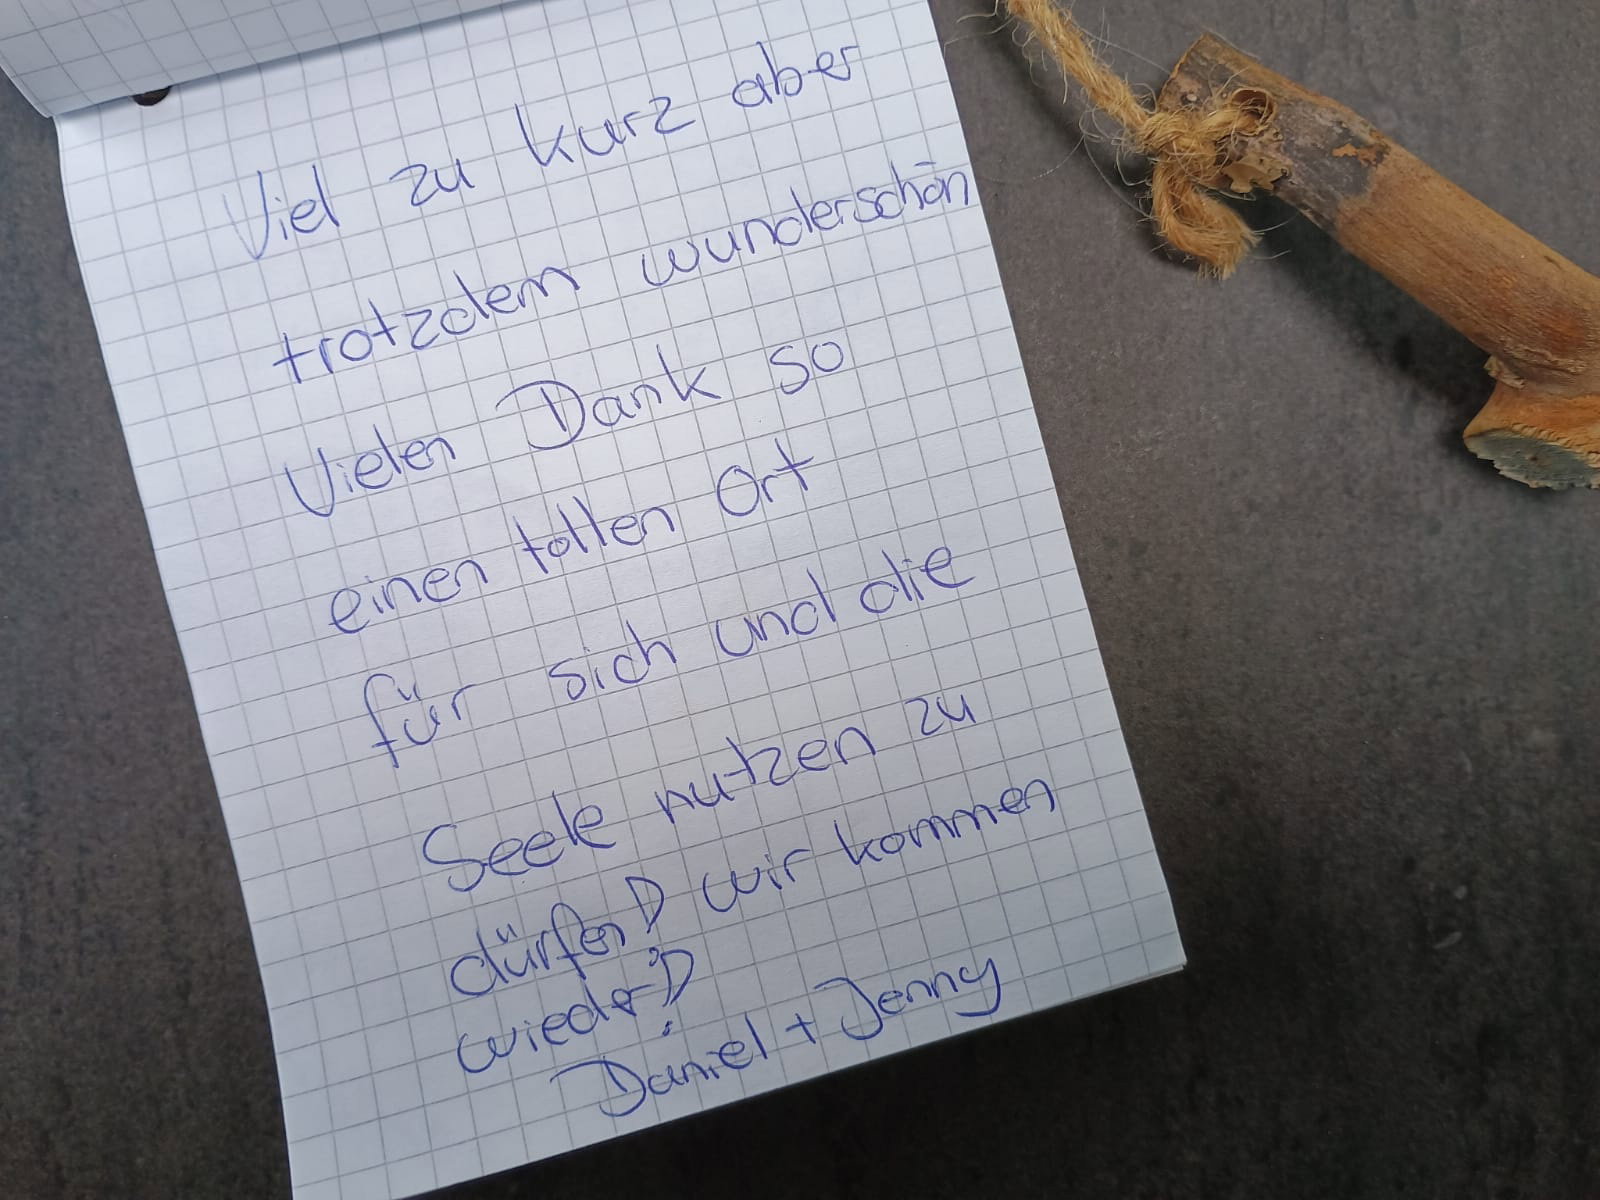 Viel zu kurz aber
trotzdem wunderschön
Vielen Dank so
einen tollen Ort
für sich und die
Seele nutzen zu
dürfen :D wir kommen
wieder :D
Daniel + Jenny